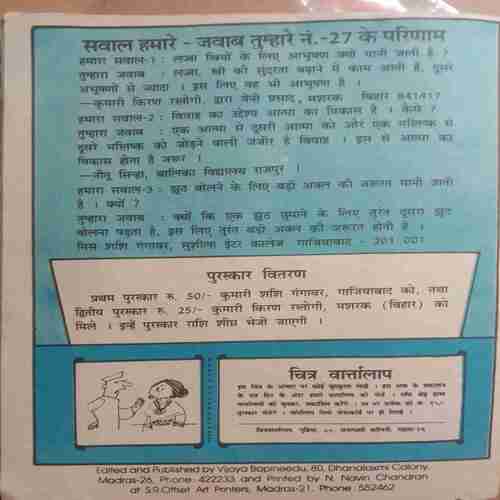 सवाल हमारे - जवाब तुम्हारे नं.-27 के परिणाम
हमारा सवाल-1 : लज्जा स्त्रियों के लिए आभूषण क्यों मानी जाती है ?
तुम्हारा जवाब : लज्जा, स्त्री की सुंदरता बढ़ाने में काम आती है, दूसरे
आभूषणों से ज्यादा । इस लिए वह भी आभूषण है ।
–कुमारी किरण रस्तोगी, द्वारा बेनी प्रसाद, मशरक बिहार 841417
हमारा सवाल-2 : विवाह का उद्देश्य आत्मा का विकास है । कैसे ?
तुम्हारा जवाब : एक आत्मा से दूसरी आत्मा को और एक मस्तिष्क से
दूसरे मस्तिष्क को जोड़ने वाली जंजीर है विवाह । इस से आत्मा का
विकास होता है जरूर ।
–नीतू सिन्हा, बालिका विद्यालय राजपुर ।
हमारा सवाल-3 : झूठ बोलने के लिए बड़ी अक्ल की जरूरत मानी जाती
है । क्यों ?
तुम्हारा जवाब : क्यों कि एक झूठ छुपाने के लिए तुरंत दूसरा झूठ
बोलना पड़ता है, इस लिए तुरंत बड़ी अक्ल की जरूरत होती है ।
मिस शशि गंगावर, सुशीला इंटर कालेज गाजियाबाद - 201 001
पुरस्कार वितरण
प्रथम पुरस्कार रु. 50/- कुमारी शशि गंगावर, गाजियाबाद को, तथा
द्वितीय पुरस्कार रु. 25/- कुमारी किरण रस्तोगी, मशरक (बिहार) को
मिले । इन्हें पुरस्कार राशि शीघ्र भेजी जाएगी ।
चित्र वार्त्तालाप
Edited and Published by Vijaya Bapineedu, 80, Dhanalaxmi Colony,
Madras-26, Phone: 422233 and Printed by N. Navin Chandran
at S.9.Offset Art Printers, Madras-21, Phone: 552462